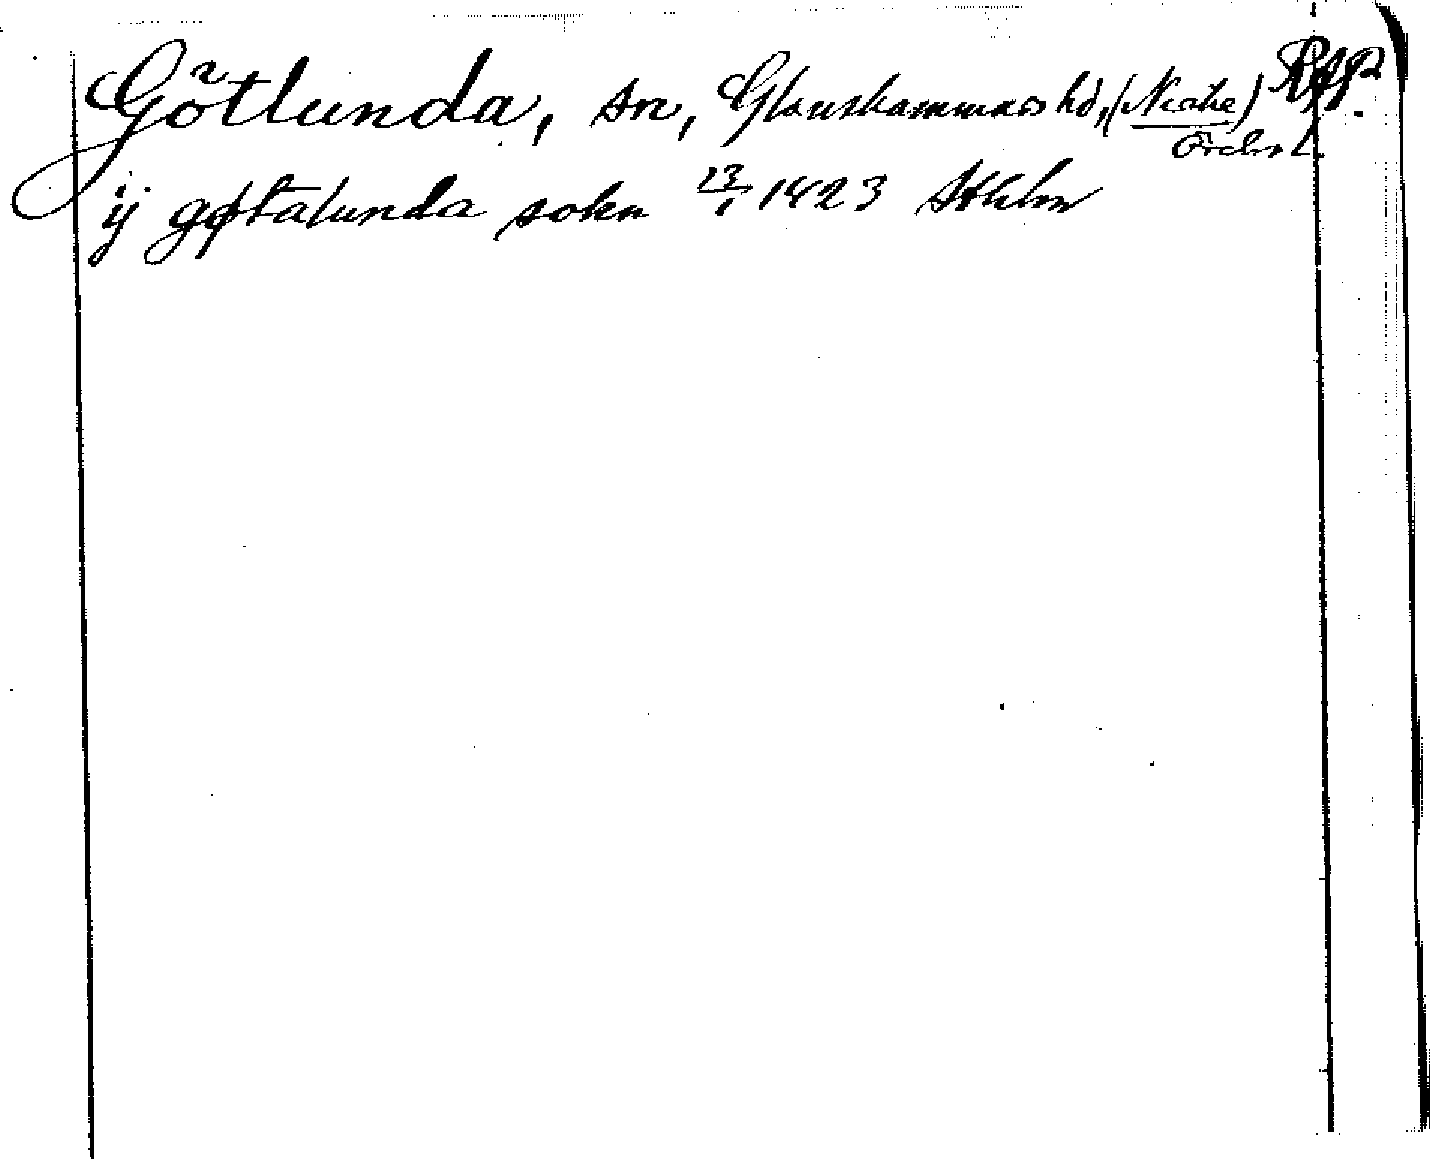 Götlunda, sn, Glanshammars hd, (Närke) RAP
Örebro l.
ij gøtalunda sokn 23/1 1423 Sthlm